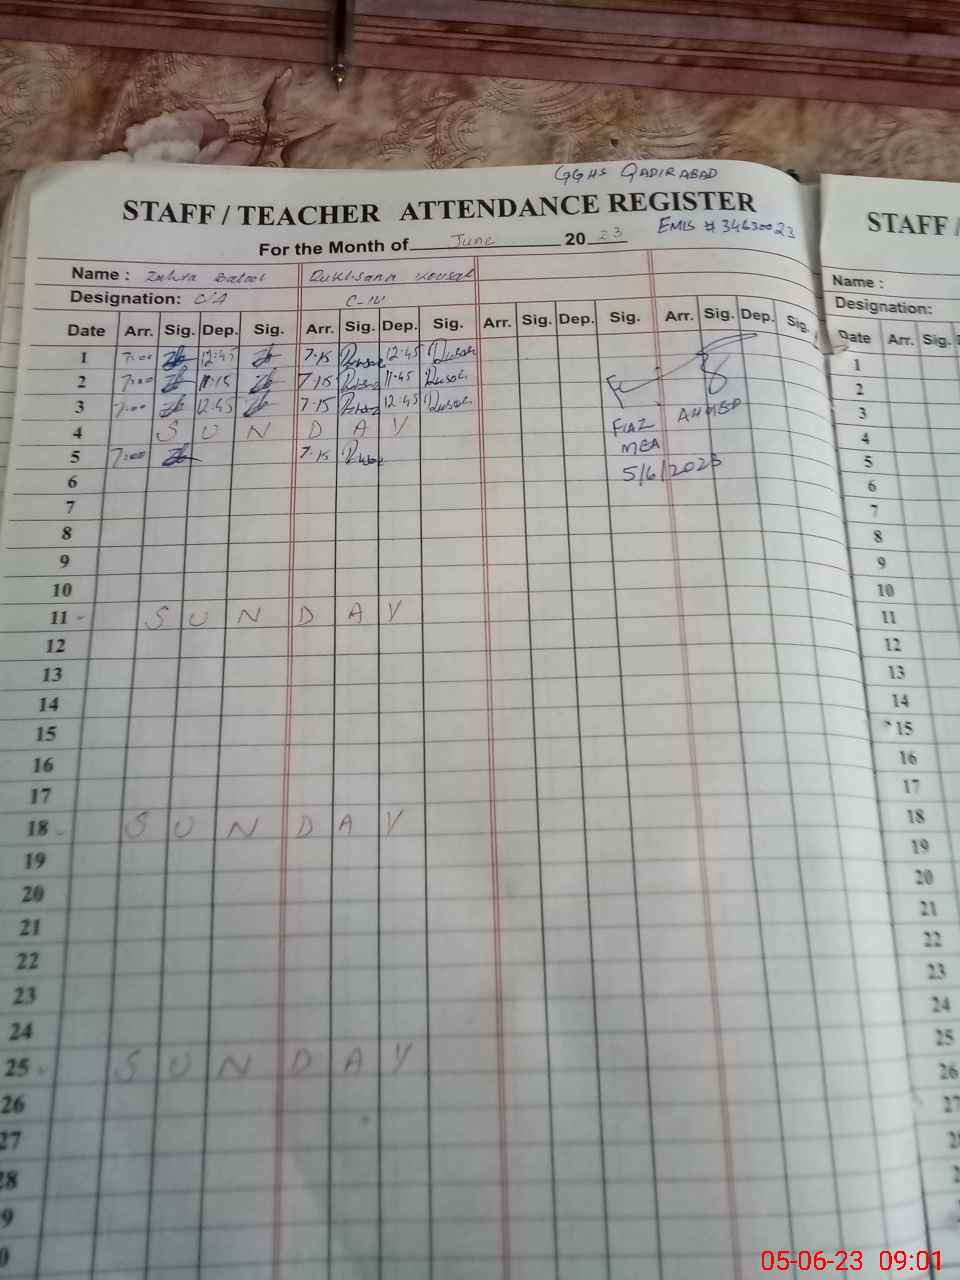 GGHS QADIRABAD
STAFF / TEACHER ATTENDANCE REGISTER
EMIS # 34630023
For the Month of June 20 23
Name : Zahra Batool Rukhsana Kousar
Designation: C-IV
Date Arr. Sig. Dep. Sig. Arr. Sig. Dep. Sig. Arr. Sig. Dep. Sig. Arr. Sig. Dep. Sig.
1 7:00 12:45 7:15 12:45
2 7:00 11:15 7:15 11:45
3 7:00 12:45 7:15 12:45
4 S U N D A Y
5 7:00 7:15
FIAZ AHMED
MEA
5/6/2023
6
7
8
9
10
11 S U N D A Y
12
13
14
15
16
17
18 S U N D A Y
19
20
21
22
23
24
25 S U N D A Y
26
27
28
9
0
STAFF /
Name :
Designation:
Date Arr. Sig.
1
2
3
4
5
6
7
8
9
10
11
12
13
14
15
16
17
18
19
20
21
22
23
24
25
26
27
05-06-23 09:01